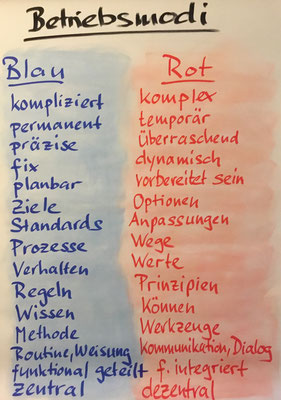 Betriebsmodi
Blau Rot
kompliziert komplex
permanent temporär
präzise Überraschend
fix dynamisch
planbar vorbereitet sein
Ziele Optionen
Standards Anpassungen
Prozesse Wege
Verhalten Werte
Regeln Prinzipien
Wissen Können
Methode Werkzeuge
Routine, Weisung Kommunikation, Dialog
funktional geteilt f. integriert
zentral dezentral